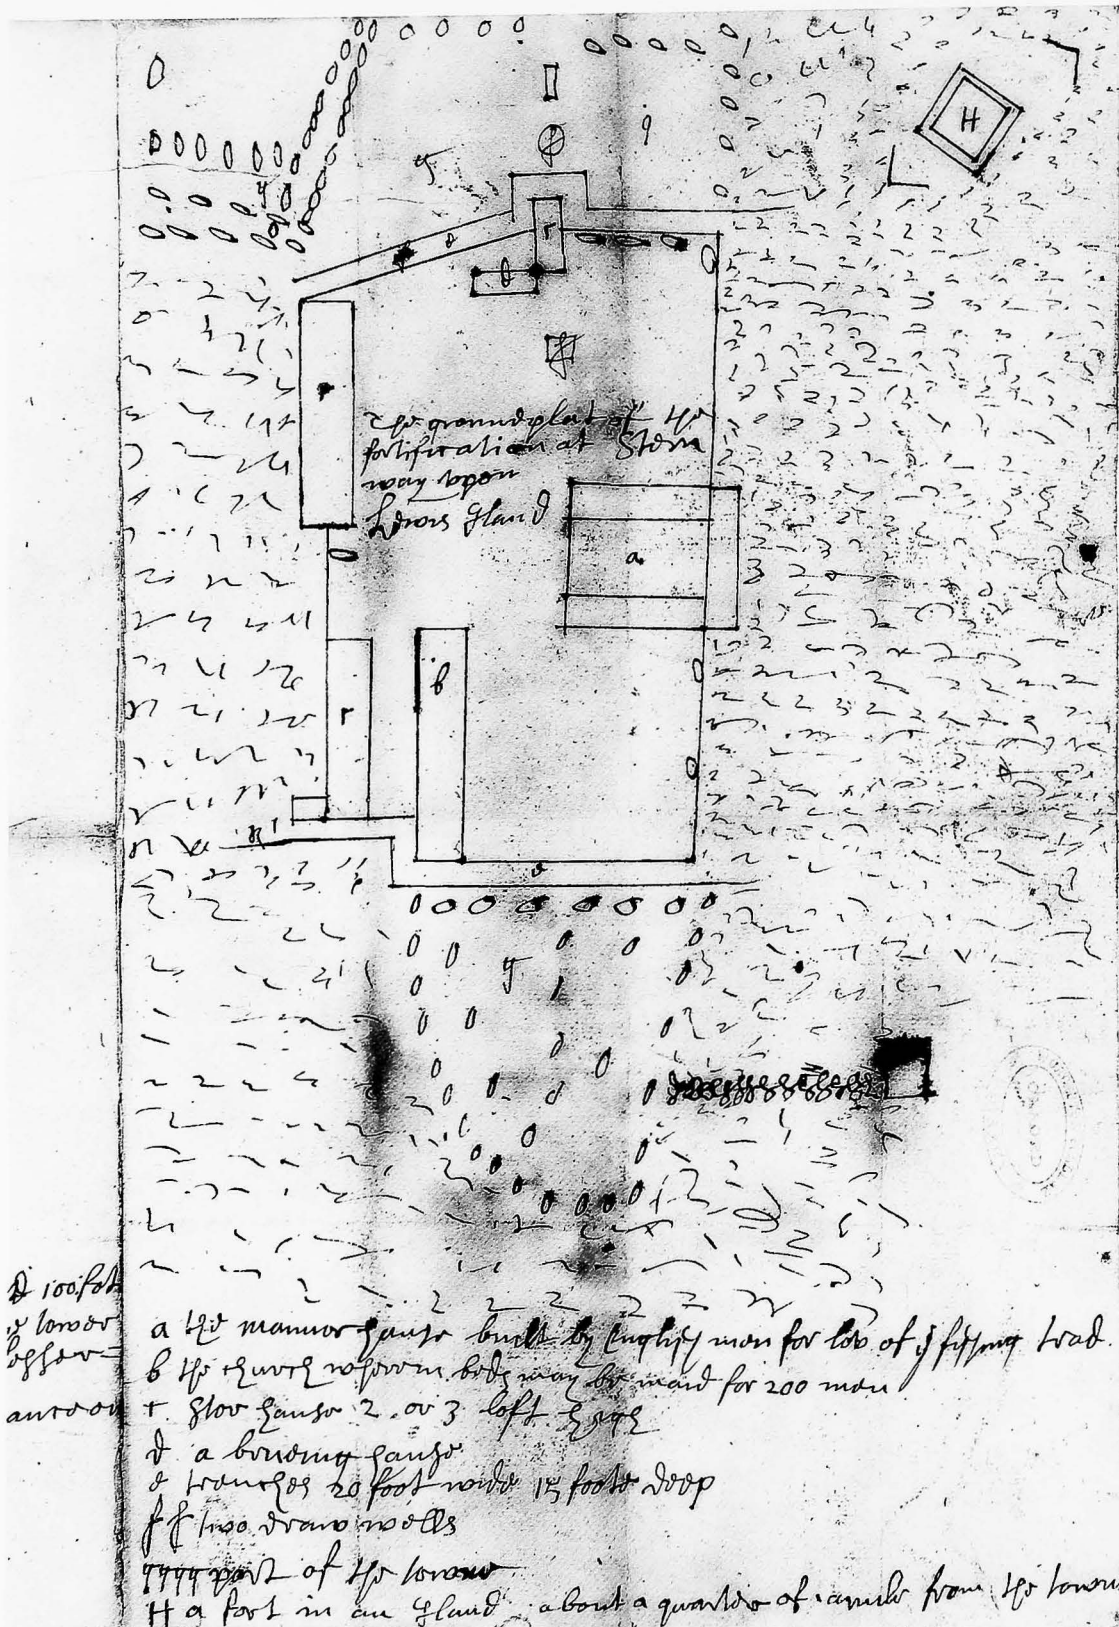 H
The groundplat of the
fortification at Stern
way upon
Lewis Iland
a
b
r
r
e
g
100 fot
e lower
a the mannor hause built by Inglish men for lov of ye fishing trad.
b the church wherein beds may be maid for 200 men
r stor hause 2 or 3 loft high
d a breueing hause
e trenches 20 foot wide 15 foote deep
f f two draw wells
gggg part of the towne
H a fort in an Iland about a quarter of a myle from the town